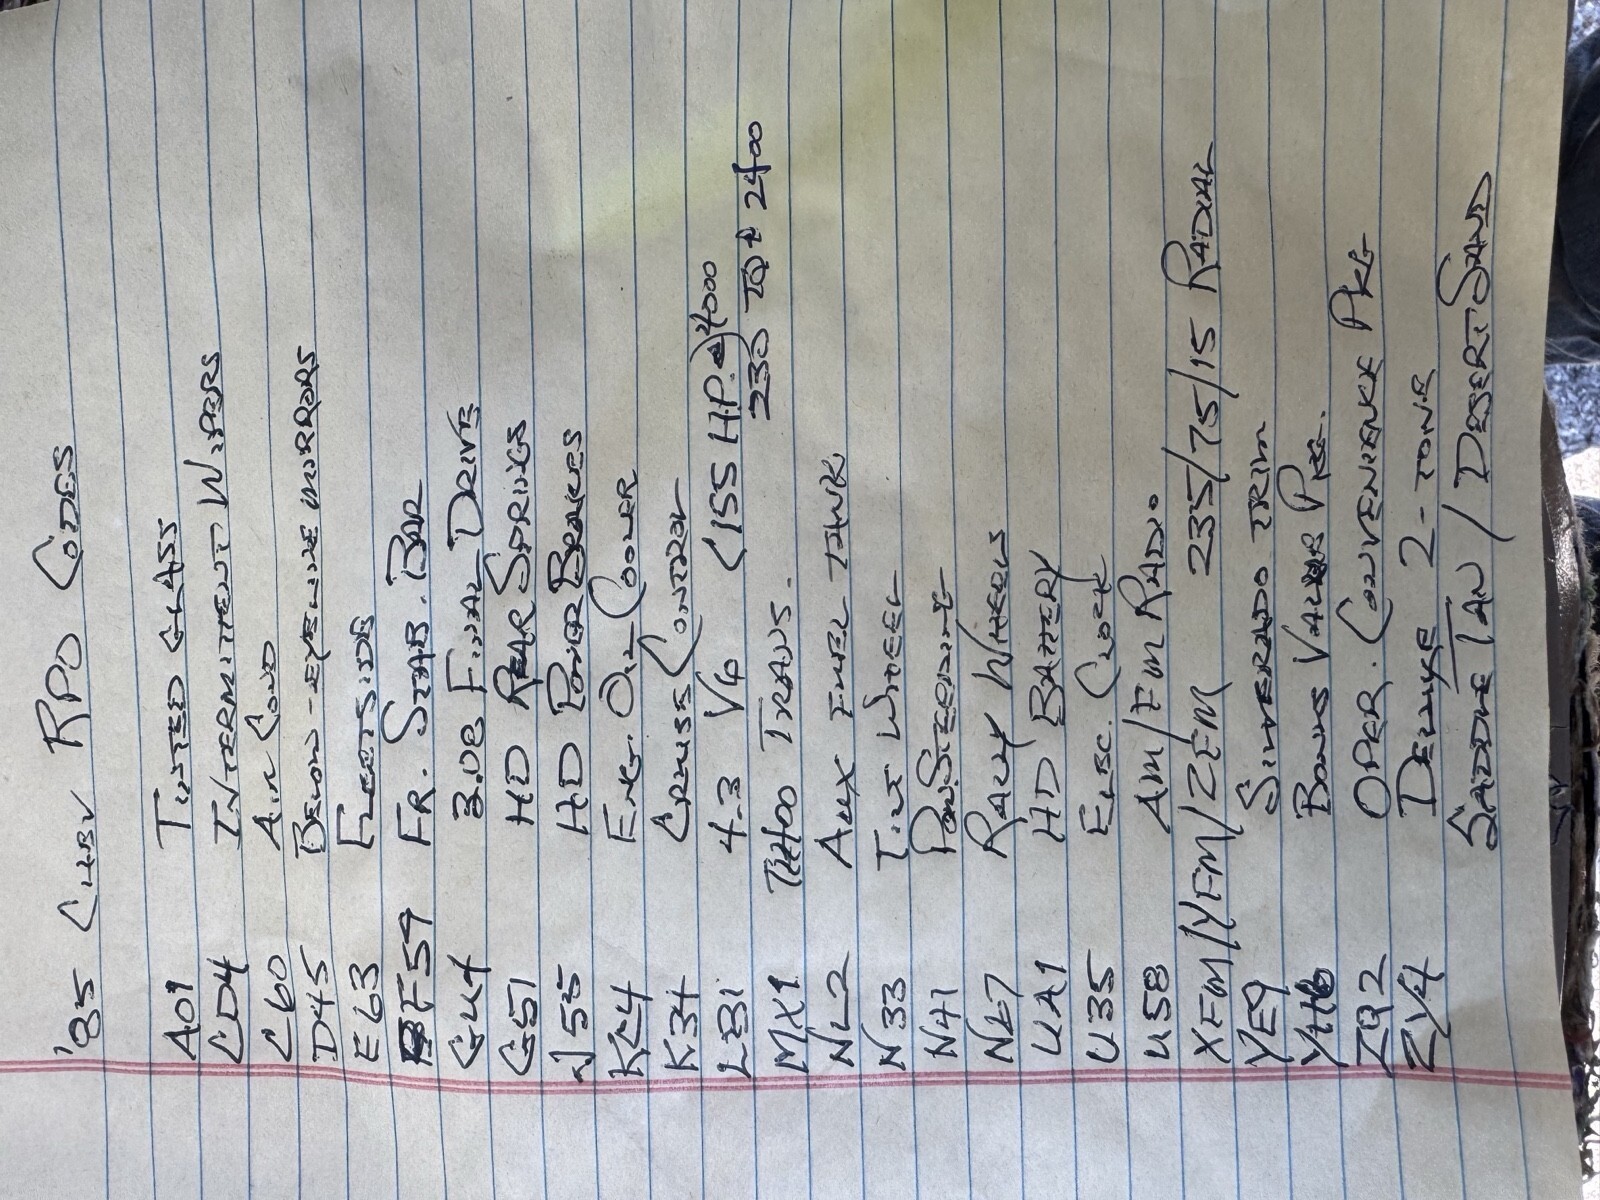 '85 CHEV RPO CODES
A01 TINTED GLASS
CD4 INTERMITTENT WIPERS
C60 AIR COND
D45 BELOW-EYELINE MIRRORS
E63 FLEETSIDE
F59 FR. STAB. BAR
GU4 3.08 FINAL DRIVE
G51 HD REAR SPRINGS
J55 HD POWER BRAKES
KC4 ENG. OIL COOLER
K34 CRUISE CONTROL
LB1 4.3 V6 (155 HP @ 4000
230 TQ @ 2400
MX1 TH400 TRANS.
NL2 AUX FUEL TANK
N33 TILT WHEEL
N41 POW. STEERING
N67 RALLY WHEELS
UA1 HD BATTERY
U35 ELEC. CLOCK
U58 AM/FM RADIO
XFM/YFM/ZFM 235/75/15 RADIAL
YE9 SILVERADO TRIM
YH6 BONUS VALUE PKG.
ZQ2 OPER. CONVENIENCE PKG
ZY4 DELUXE 2-TONE
SADDLE TAN / DESERT SAND